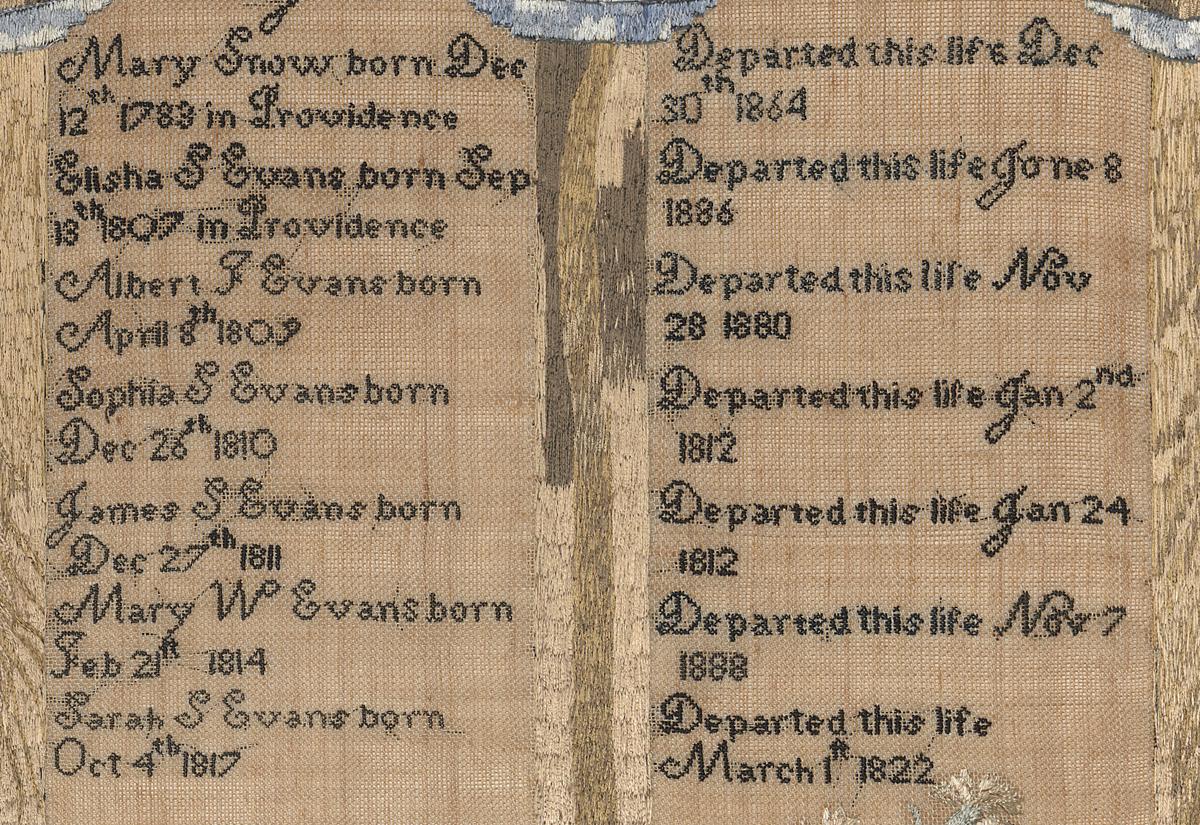 Mary Snow born Dec
12th 1783 in Providence
Elisha S Evans born Sep
13th 1807 in Providence
Albert F Evans born
April 8th 1809
Sophia S Evans born
Dec 26th 1810
James S Evans born
Dec 27th 1811
Mary Wo Evans born
Feb 21st 1814
Sarah S Evans born
Oct 4th 1817
Departed this life Dec
30th 1864
Departed this life Jone 8
1886
Departed this life Nov
28 1880
Departed this life Jan 2nd
1812
Departed this life Jan 24
1812
Departed this life Nov 7
1888
Departed this life
March 1st 1822